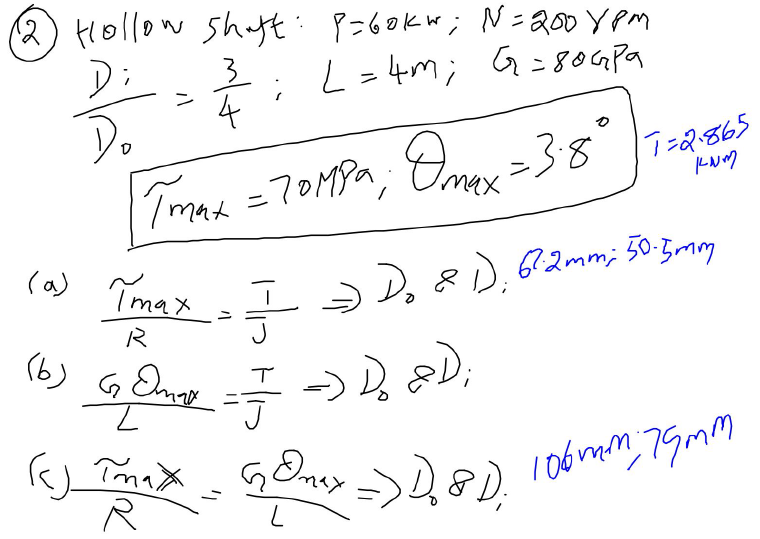 ② Hollow shaft: P=60kW; N=200rpm
Di/Do = 3/4; L=4m; G=80GPa
τmax = 70MPa; θmax = 3.8°
T=2.865 kNm
(a) τmax/R = T/J ⇒ Do & Di 67.2mm; 50.5mm
(b) Gθmax/L = T/J ⇒ Do & Di
(c) τmax/R = Gθmax/L ⇒ Do & Di 106mm; 79mm